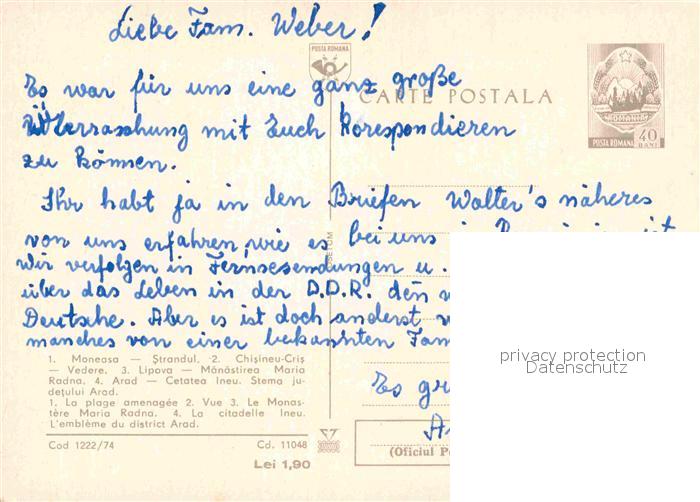 Liebe Fam. Weber!
POSTA ROMANA
Es war für uns eine ganz große
CARTE POSTALA
Überraschung mit Euch korespondieren
POSTA ROMANA 40 BANI
zu können.
Ihr habt ja in den Briefen Walter's näheres
von uns erfahren, wie es bei uns
wir verfolgen in Fernsesendungen u.
über das Leben in der D.D.R. den
Deutsche. Aber es ist doch anderst
manches von einer bekannten Fam
1. Moneasa — Ştrandul. 2. Chişineu-Criş
— Vedere. 3. Lipova — Mănăstirea Maria
Radna. 4. Arad — Cetatea Ineu. Stema ju-
deţului Arad.
1. La plage amenagée 2. Vue 3. Le Monas-
tère Maria Radna. 4. La citadelle Ineu.
L'emblème du district Arad.
Es
Cod 1222/74 Cd. 11048
Lei 1,90
(Oficiul
privacy protection
Datenschutz